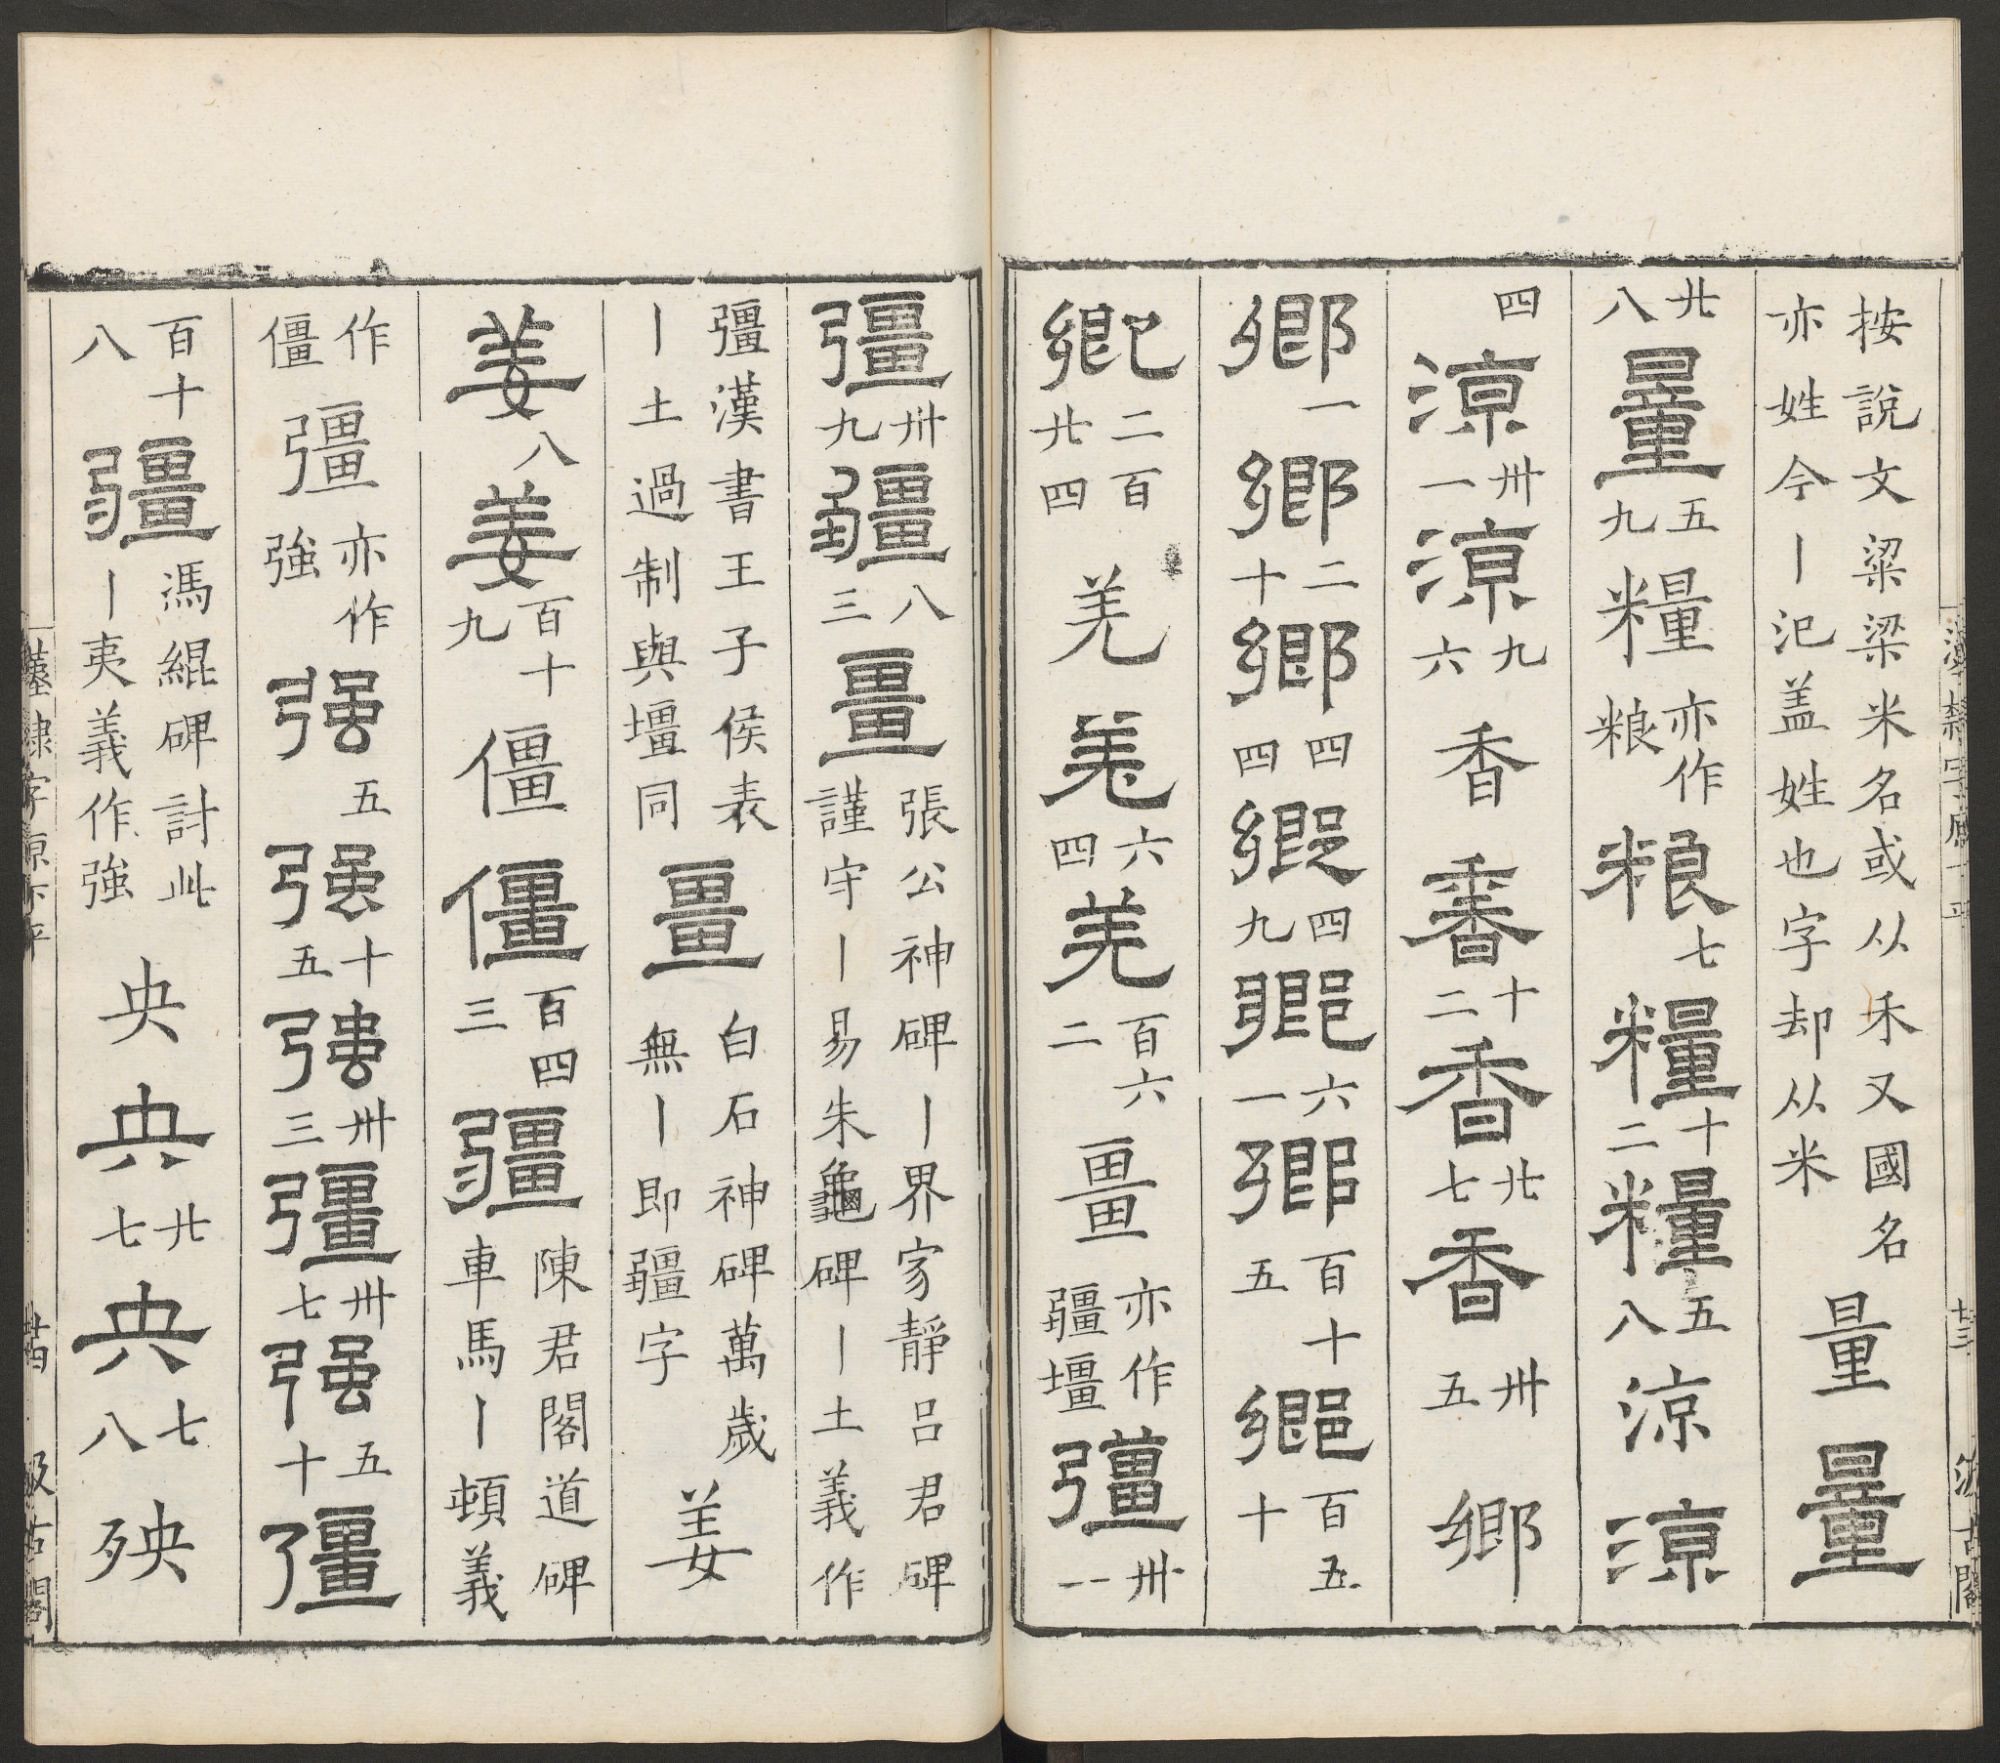 按說文粱梁米名或从禾又國名
亦姓今丨氾盖姓也字却从米
量量
廿八量五九糧亦作粮粮七糧十二糧五八涼涼
四涼卅一涼九六香香十二香廿七香卅五鄉
鄉一鄉二十鄉四四鄉四九鄉六一鄉百十五鄉百五十
鄉二百廿四羌羌六四羌百六二畺亦作疆壃彊卅一
彊卅九疆八三畺張公神碑丨界家靜呂君碑
謹守丨易朱龜碑丨土義作
彊漢書王子侯表
丨土過制與壃同
畺白石神碑萬歲
無丨即疆字
姜
姜八姜百十九僵僵百四三疆陳君閣道碑
車馬丨頓義
作僵彊亦作強强五强十五强卅三彊卅七强五十彊
百十八疆馮緄碑討此
丨夷義作強
央央廿七央七八殃
漢隸字源下平
廿三
汲古閣
漢隸字源下平
廿四
汲古閣